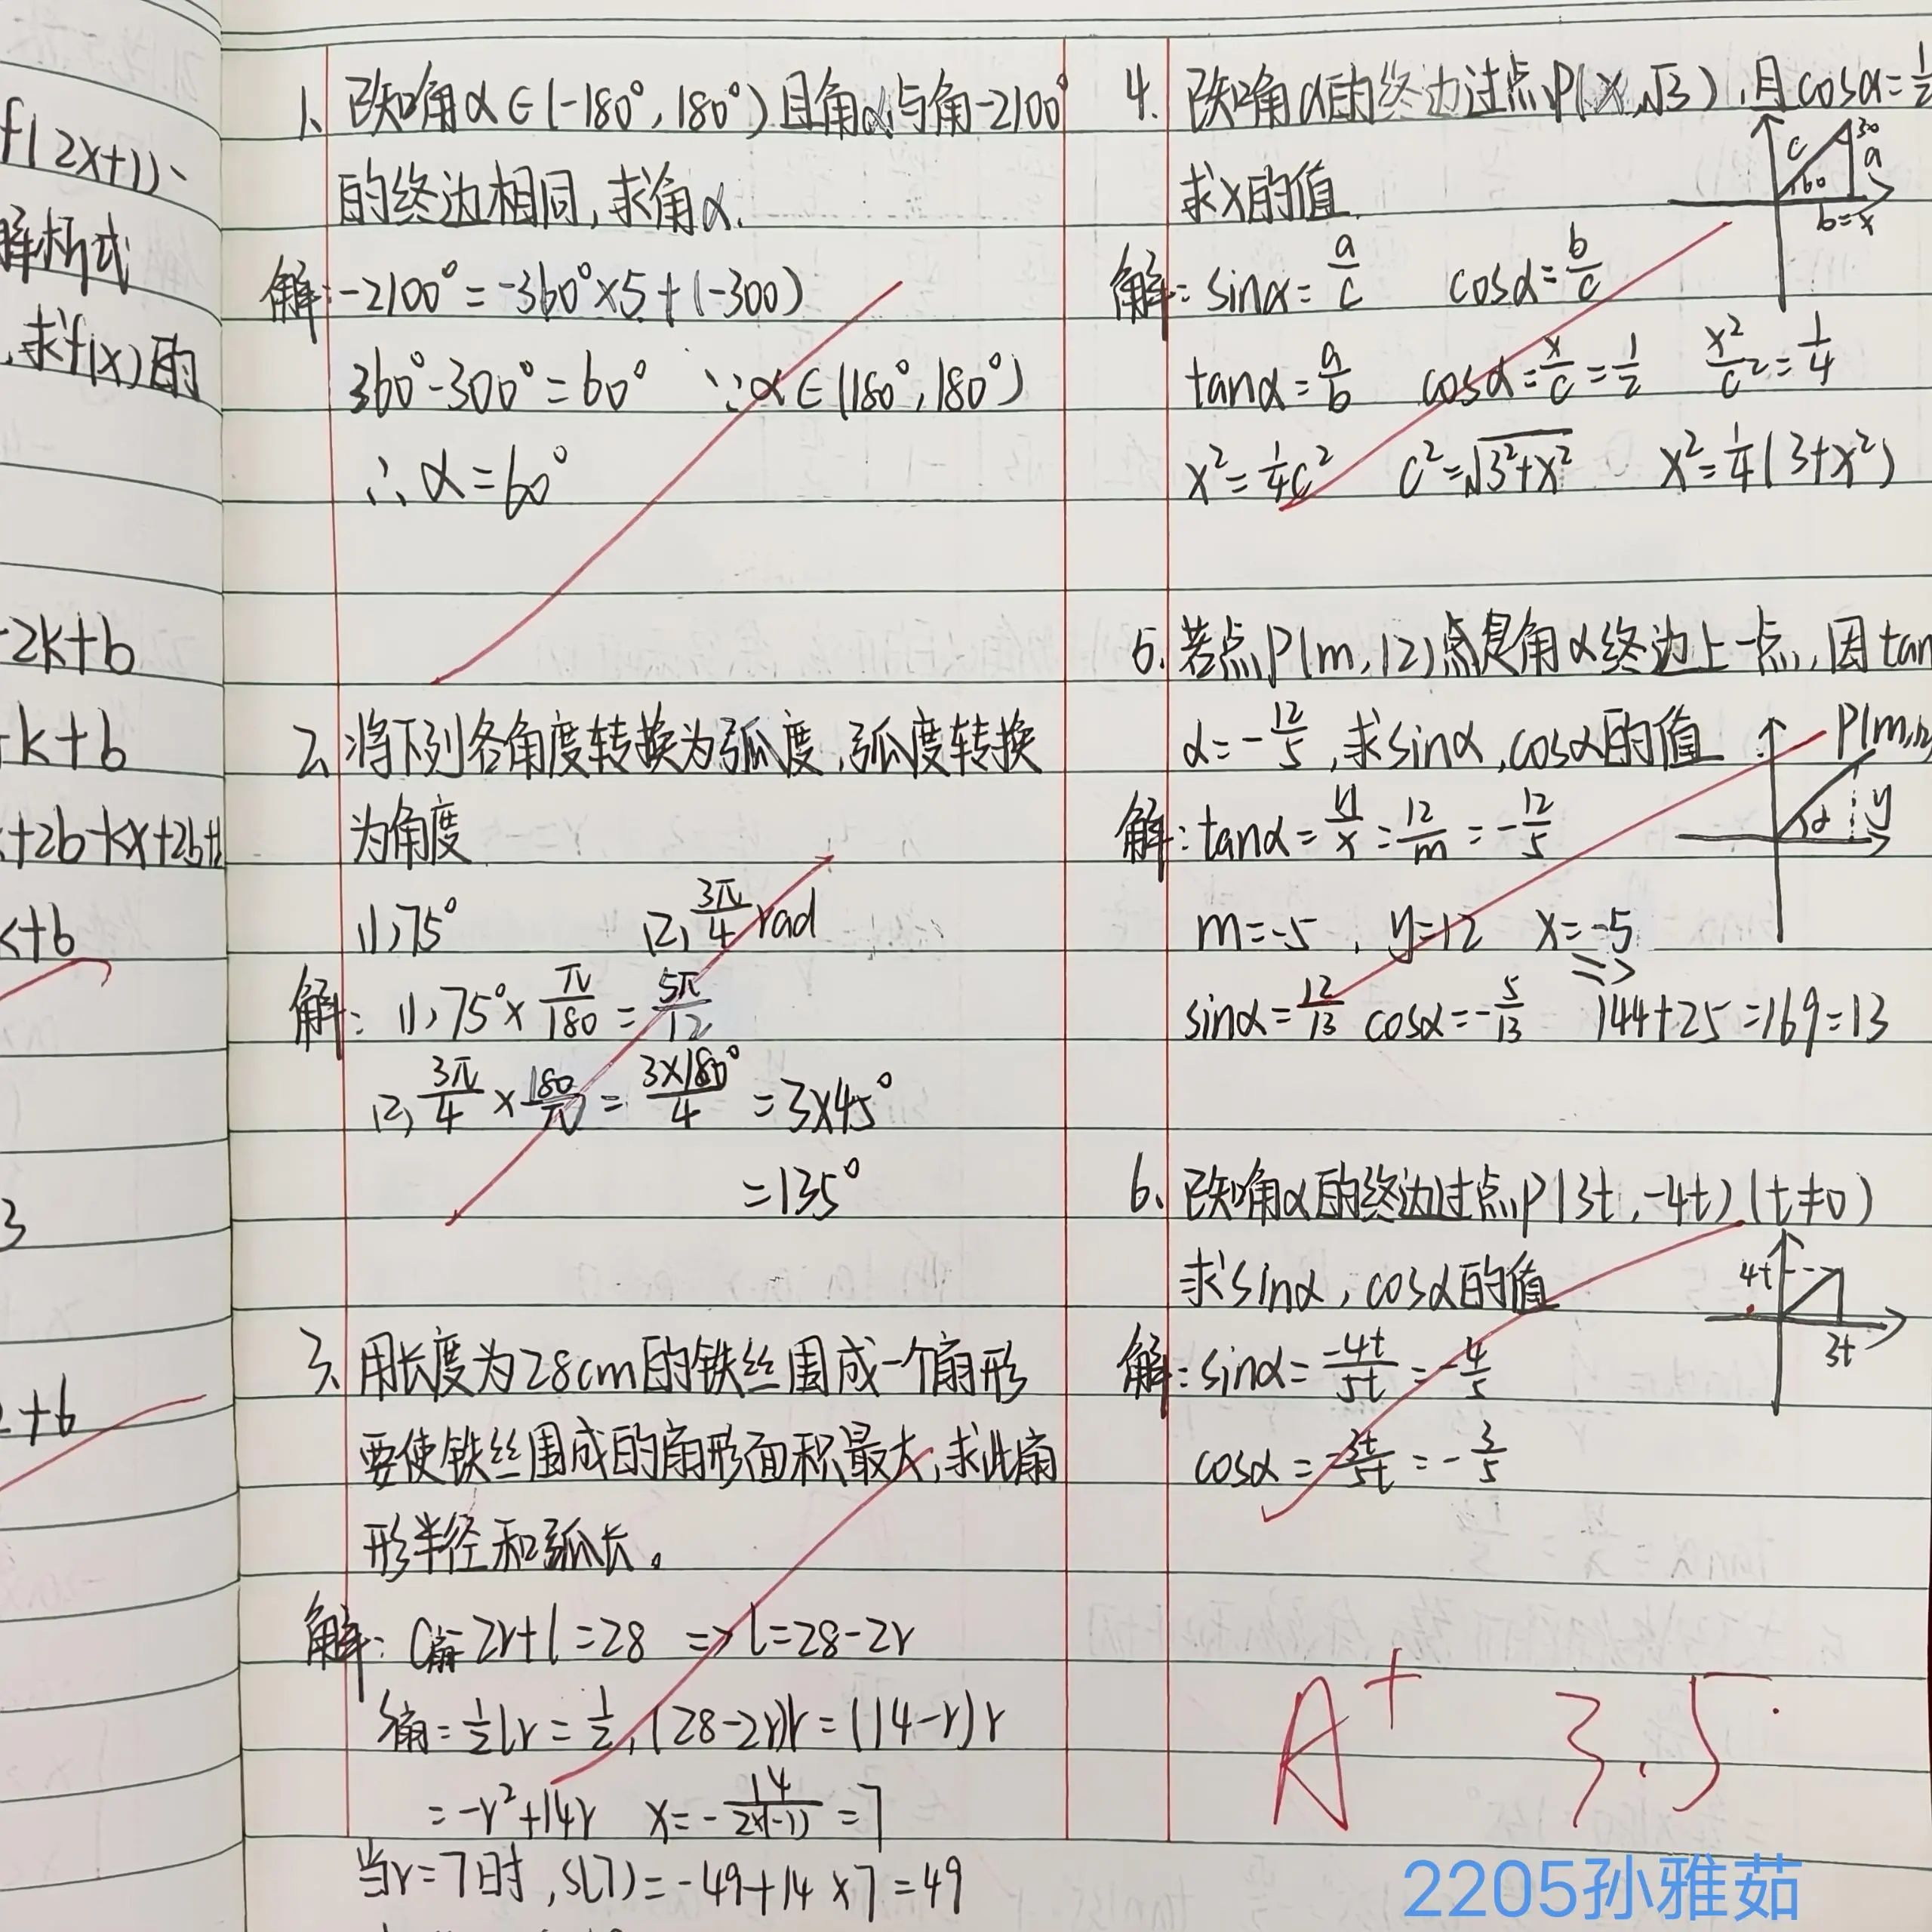 f(2x+1)、
解析式
,求f(x)的
-2k+b
k+b
+2b+kx+2b+
k+b
3
2+b
1、已知角α∈(-180°,180°)且角α与角-2100°
的终边相同,求角α.
解:-2100°=-360°×5+(-300)
360°-300°=60° ∵α∈(180°,180°)
∴α=60°
2、将下列各角度转换为弧度,弧度转换
为角度
(1)75° (2)3π/4 rad
解:(1)75°×π/180=5π/12
(2)3π/4×180/π=3×180°/4=3×45°
=135°
3、用长度为28cm的铁丝围成一个扇形
要使铁丝围成的扇形面积最大,求此扇
形半径和弧长。
解:C扇=2r+l=28 => l=28-2r
S扇=1/2lr=1/2,(28-2r)r=(14-r)r
=-r²+14r x=-14/2×(-1)=7
当r=7时,S(7)=-49+14×7=49
4.已知角α的终边过点P(x,√3),且cosα=1/2
求x的值
c 30 a 60 b=x
解:sinα=a/c cosα=b/c
tanα=a/b cosα=x/c=1/2 x²/c²=1/4
x²=1/4c² c²=√3²+x² x²=1/4(3+x²)
5.若点P(m,12)点是角α终边上一点,因tan
α=-12/5,求sinα,cosα的值
P(m,12) y α
解:tanα=y/x=12/m=-12/5
m=-5,y=12 x=-5
=>
sinα=12/13 cosα=-5/13 144+25=169=13
6、已知角α的终边过点P(3t,-4t)(t≠0)
求sinα,cosα的值
4t 3t
解:sinα=-4t/5t=-4/5
cosα=-3t/5t=-3/5
A+ 3.5
2205孙雅茹